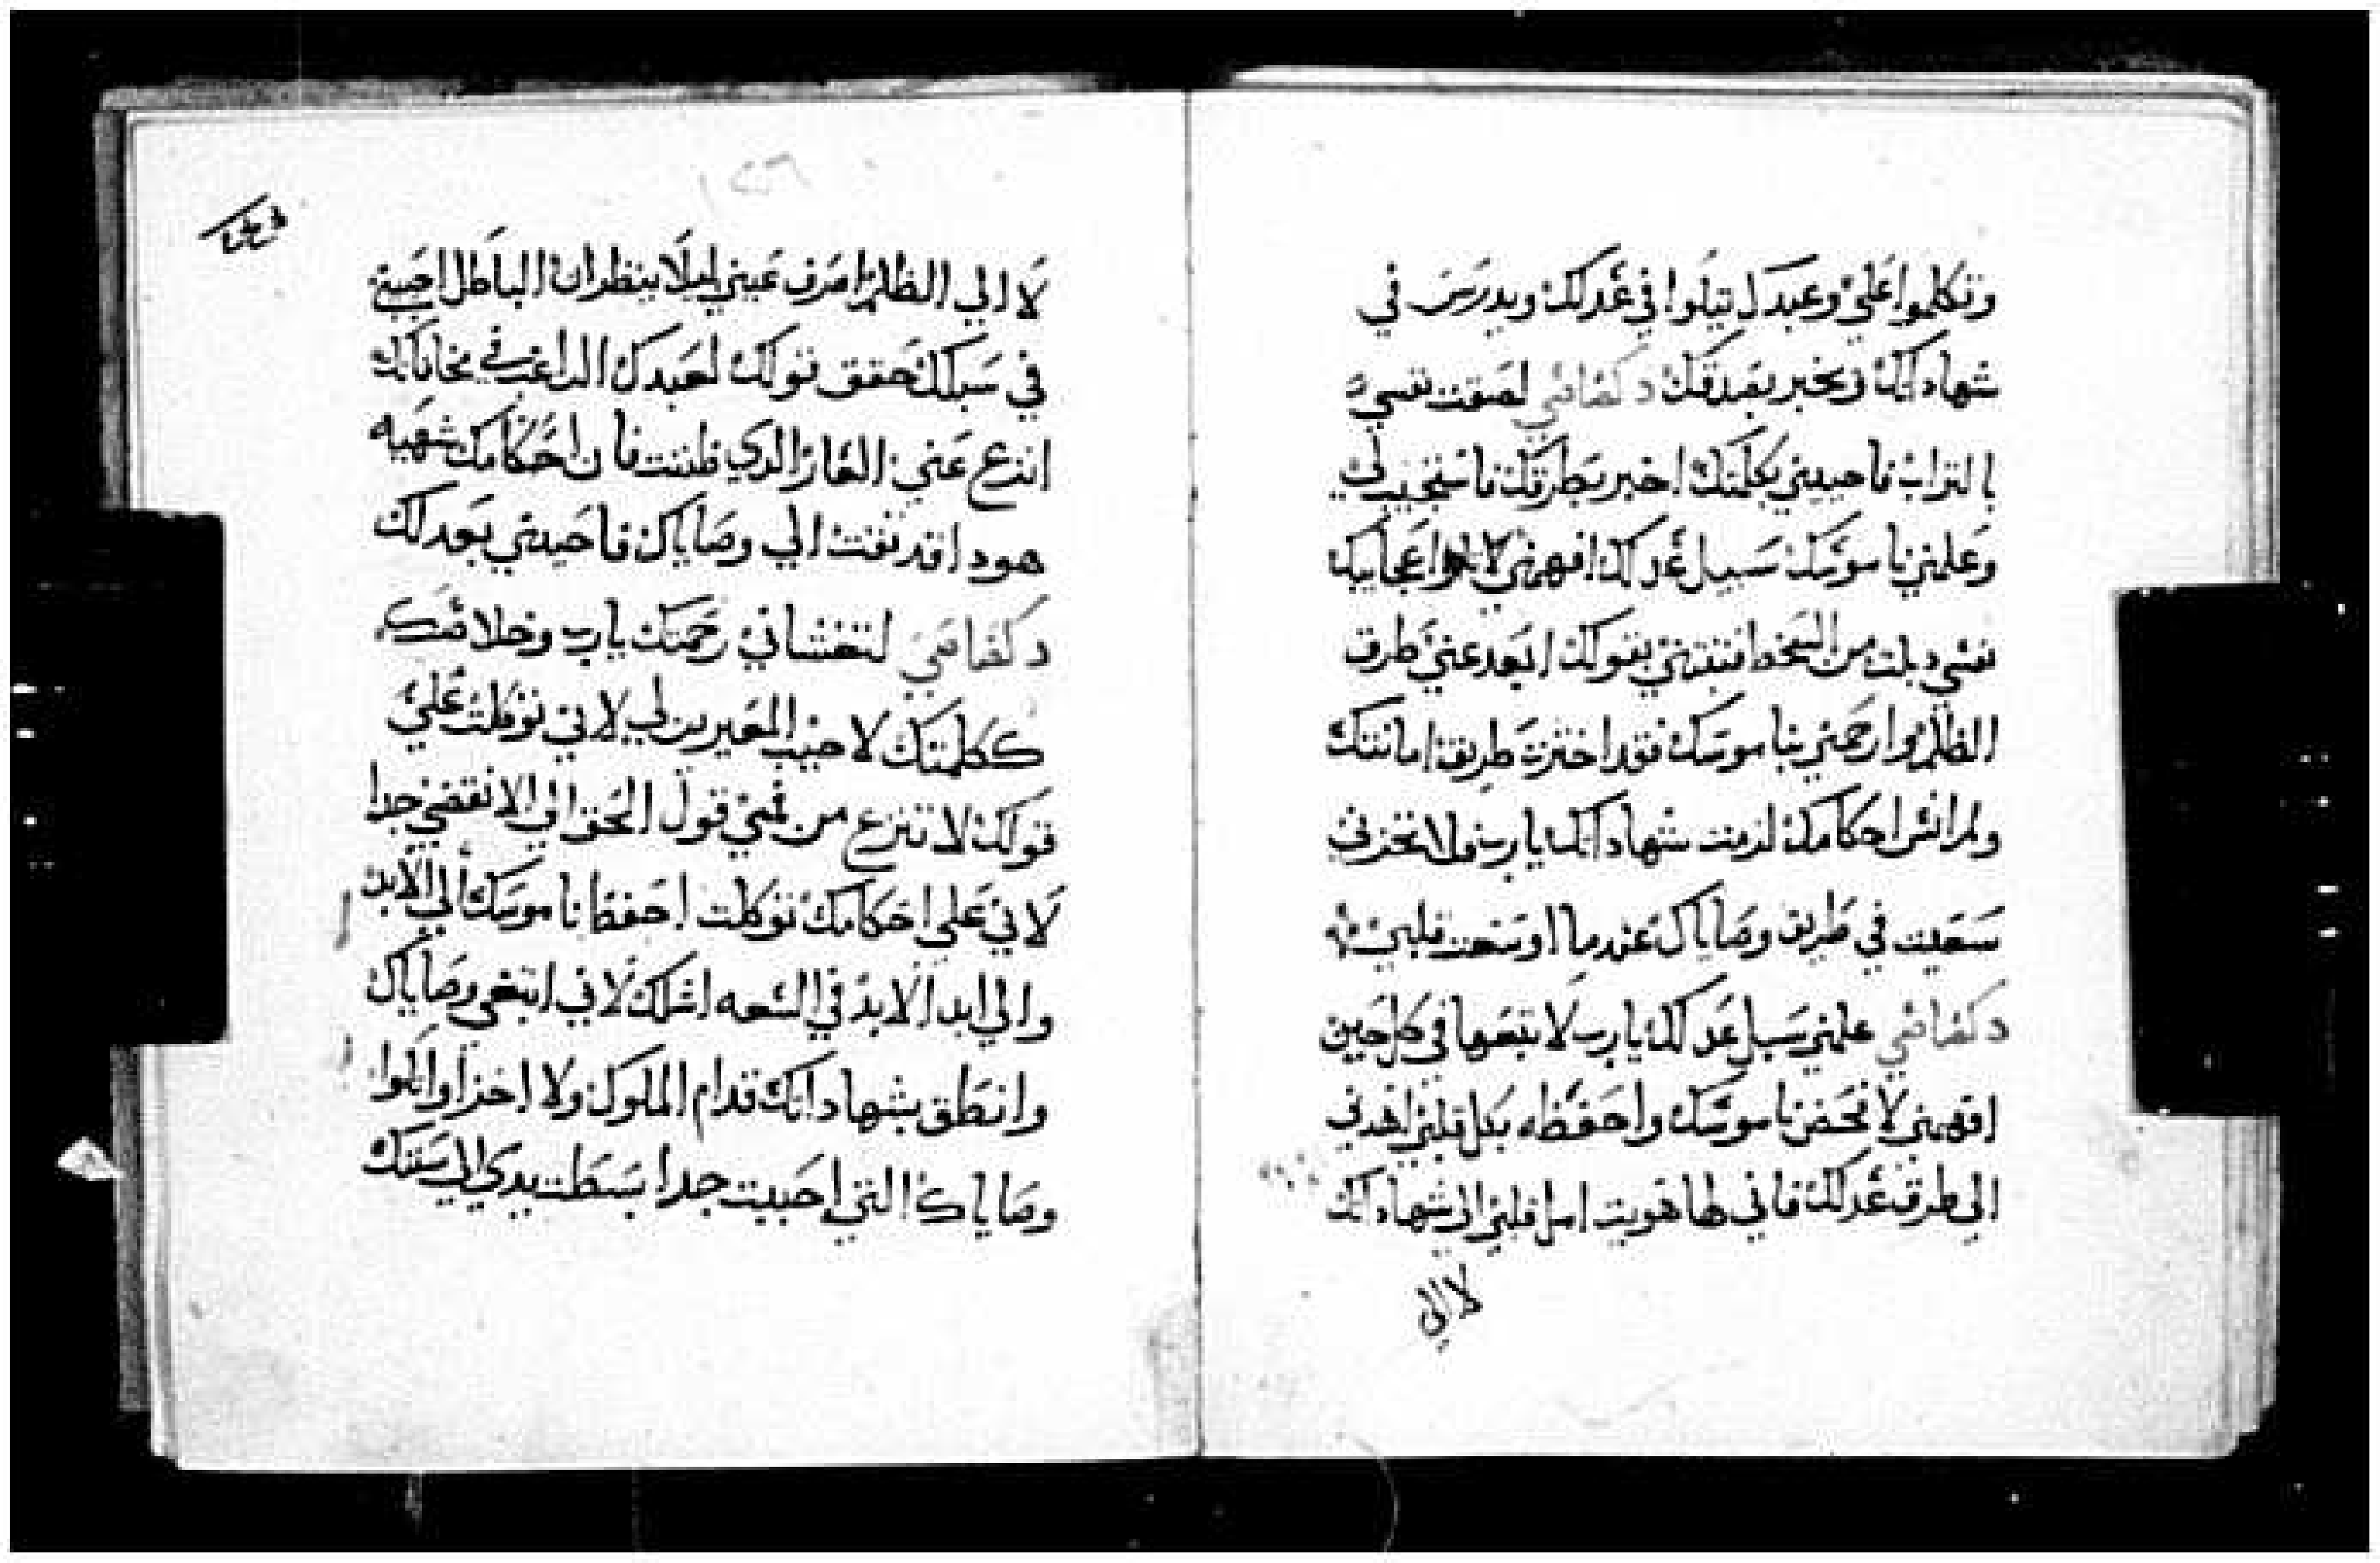 وتكلموا علي وعبدك يتلوا في عدلك ويدرس في
شهاداتك ويخبر بصدقك د كفاضي لصقت نفسي
بالتراب فاحييني بكلمتك اخبر بطرقك فاستجيب لي
وعلمني ناموسك سبيل عدلك افهمني لاتلوا عجايبك
نفسي دبلت من السخط فثبتني بقولك ابعد عني طرق
الظلم وارحمني بناموسك فقد اخترت طريق امانتك
ولم انس احكامك لزمت شهاداتك يارب فلا تخزني
سعيت في طريق وصاياك عندما اوسعت قلبي
د كفاضي علمني سبل عدلك يارب لاتبعها في كل حين
افهمني لافحص ناموسك واحفظه بكل قلبي اهدني
الي طرق عدلك فاني لها هويت امل قلبي الي شهاداتك
لا الي
١٢٦
لا الي الظلم اصرف عيني ليلا ينظران الباطل احييني
في سبلك حقق قولك لعبدك الراغب في مخافتك
انزع عني العار الدي ظننت فان احكامك شهيه
هودا قد تقت الي وصاياك فاحييني بعدلك
د كفاضي لتغشاني رحمتك يارب وخلاصك
ككلمتك لاجيب المعيرين لي لاني توكلت علي
قولك لا تنزع من فمي قول الحق الي الانقضي جدا
لاني علي احكامك توكلت احفظ ناموسك الي الابد
والي ابد الابد في السعه اسلك لاني ابتغي وصاياك
وانطق بشهاداتك قدام الملوك ولا اخزا واتلوا
وصاياك التي احببت جدا بسطت يدي الي سننك